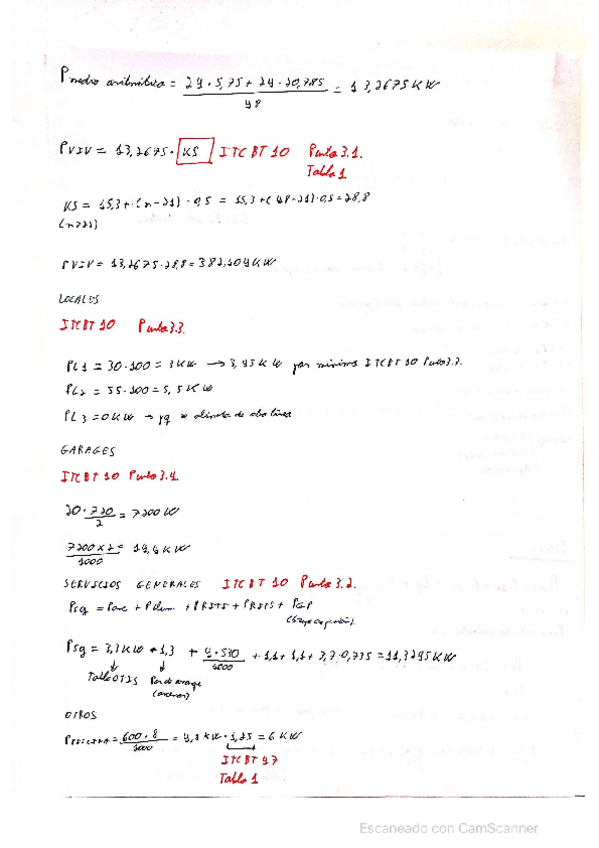 P medio aritmética = 24 · 5,75 + 24 · 20,785 / 48 = 13,2675 KW
PVIV = 13,2675 · KS ITC BT 10 Punto 3.1.
Tabla 1
KS = 15,3 + (n-21) · 0,5 = 15,3 + (48-21) · 0,5 = 28,8
(n>21)
PVIV = 13,2675 · 28,8 = 382,104 KW
LOCALES
ITCBT 10 Punto 3.3.
PL1 = 30 · 100 = 3 KW → 3,45 KW por mínimo ITCBT 10 Punto 3.3.
PL2 = 55 · 100 = 5,5 KW
PL3 = 0 KW → yq se alimenta de otra línea
GARAGES
ITCBT 10 Punto 3.4.
20 · 720 / 2 = 7200 W
7200 x 2 / 1000 = 14,4 KW
SERVICIOS GENERALES ITCBT 10 Punto 3.2.
Psg = Pasc + Palum + PRITI + PRITS + PGP
(Grupo de presión)
Psg = 3,3 KW · 1,3 + 4 · 530 / 1000 + 1,1 + 1,1 + 3,7 · 0,735 = 11,3295 KW
Tabla OTIS
Par de arranque
(ascensor)
OTROS
PPISCINA = 600 · 8 / 1000 = 4,8 KW · 1,25 = 6 KW
ITCBT 47
Tabla 1
Escaneado con CamScanner